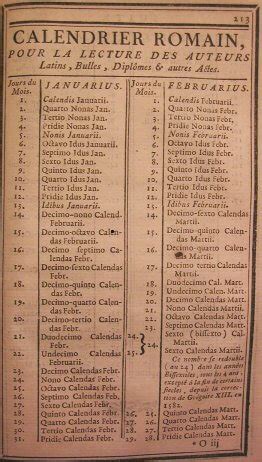 213
CALENDRIER ROMAIN,
POUR LA LECTURE DES AUTEURS
Latins, Bulles, Diplômes & autres Actes.
Jours du
Mois.
JANUARIUS.
1. Calendis Januarii.
2. Quarto Nonas Jan.
3. Tertio Nonas Jan.
4. Pridie Nonas Jan.
5. Nonis Januarii.
6. Octavo Idus Jan.
7. Septimo Idus Jan.
8. Sexto Idus Jan.
9. Quinto Idus Jan.
10. Quarto Idus Jan.
11. Tertio Idus Jan.
12. Pridie Idus Jan.
13. Idibus Januarii.
14. Decimo-nono Calend.
Februarii.
15. Decimo-octavo Calen-
Februarii.
16. Decimo septimo Ca-
lendas Febr.
17. Decimo-sexto Calendas
Febr.
18. Decimo-quinto Calen-
das Febr.
19. Decimo-quarto Calen-
das Febr.
20. Decimo-tertio Calen-
das Febr.
21. Duodecimo Calendas
Febr.
22. Undecimo Calendas
Febr.
23. Decimo Calendas Febr.
24. Nono Calendas Febr.
25. Octavo Calendas Febr.
26. Septimo Calendas Feb.
27. Sexto Calendas Febr.
28. Quinto Calendas Febr.
29. Quarto Calendas Febr.
30. Tertio Calendas Febr.
31. Pridie Calendas Febr.
Jours du
Mois.
FEBRUARIUS.
1. Calendis Februarii.
2. Quarto Nonas Febr.
3. Tertio Nonas Febr.
4. Pridie Nonas Febr.
5. Nonis Februarii.
6. Octavo Idus Febr.
7. Septimo Idus Febr.
8. Sexto Idus Febr.
9. Quinto Idus Febr.
10. Quarto Idus Febr.
11. Tertio Idus Febr.
12. Pridie Idus Febr.
13. Idibus Februarii.
14. Decimo-sexto Calendas
Martii.
15. Decimo-quinto Calen-
das Martii.
16. Decimo-quarto Calen-
das Martii.
17. Decimo tertio Calendas
Martii.
18. Duodecimo Cal. Mart.
19. Undecimo Calen. Mart.
20. Decimo Calendas Mart.
21. Nono Calendas Martii.
22. Octavo Calendas Mart.
23. Septimo Calendas Mart.
24. Sexto (bissexto) Cal.
Martii.
24. Sexto Calendas Martii.
Ce nombre se redouble
(au 24) dans les années
Bissextiles, tous les 4 ans,
excepté à la fin de certains
siecles, depuis la correc-
tion de Grégoire XIII. en
1582.
25. Quinto Calendas Mart.
Quarto Calendas Mart.
Tertio Calendas Mart.
28. Pridie Calendas Mart.
O iij